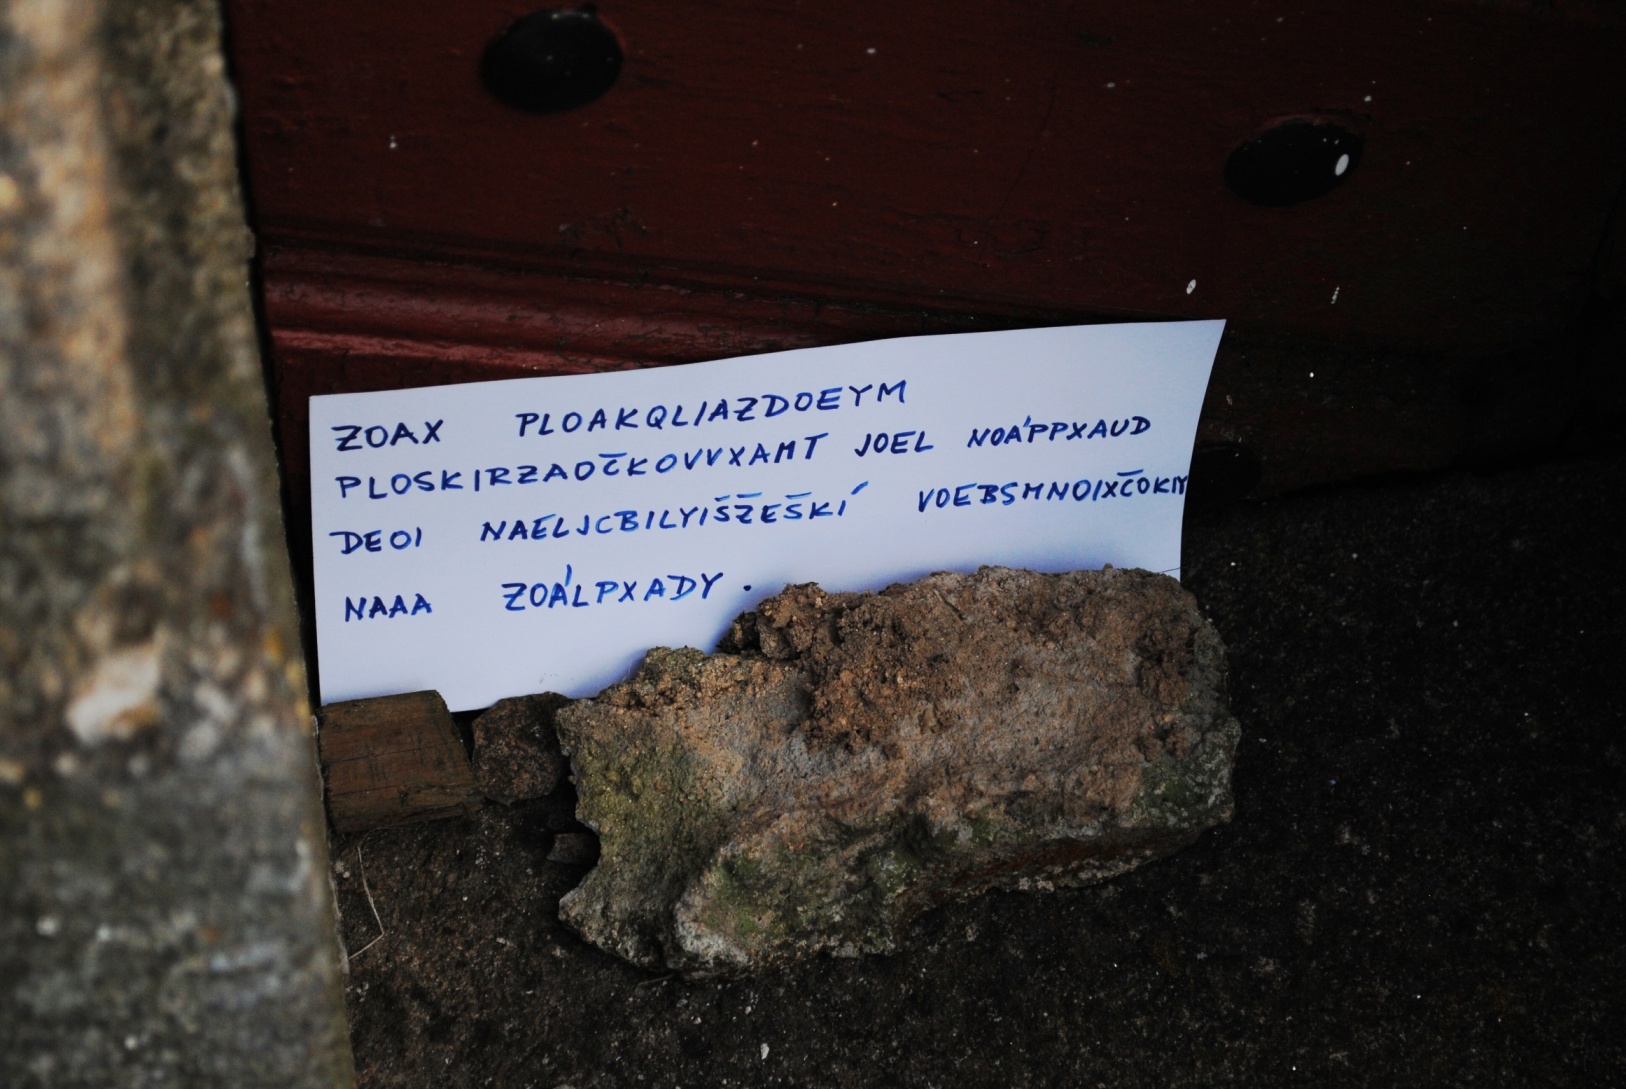 ZOAX PLOAKQLIAZDOEYM
PLOSKIRZAOČKOVVXAMT JOEL NOÁPPXAUD
DEOI NAELJCBILYIŠŽEŠKÍ VOEBSMNOIXČOKM
NAAA ZOÁLPXADY.